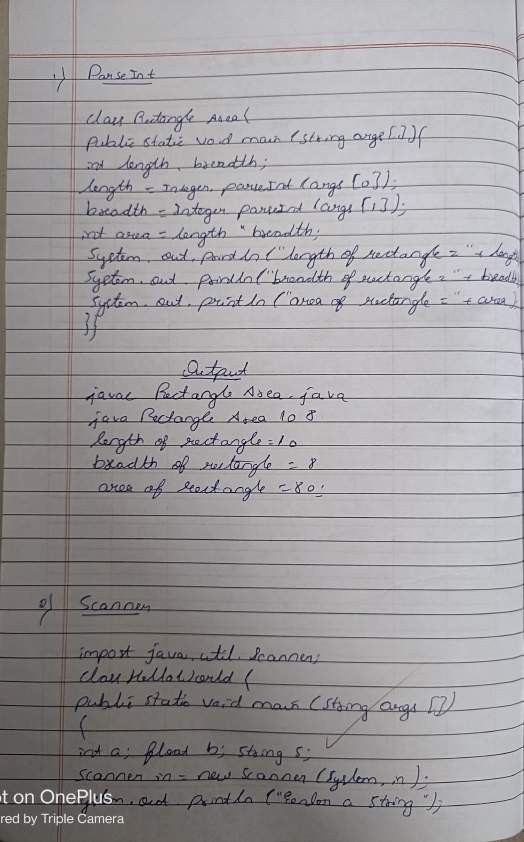 1) ParseInt
class Rectangle Area{
Public static void main (string args[]){
int length, breadth;
length = Integer. parseInt (args [0]);
breadth = Integer parseInt (args [1]);
int area = length * breadth;
System. out. println ("length of rectangle = " + leng
System. out. println ("breadth of rectangle = " + breadth
System. out. println ("area of rectangle = " + area)
}}
Output
javac Rectangle Area. java
java Rectangle Area 10 8
length of rectangle = 10
breadth of rectangle = 8
area of rectangle = 80.
2) Scanner
import java. util. Scanner;
class HelloWorld {
public static void main (String args [])
{
int a; float b; string s;
Scanner in = new Scanner (System, in);
out println (" a string ");
t on OnePlus
red by Triple Camera